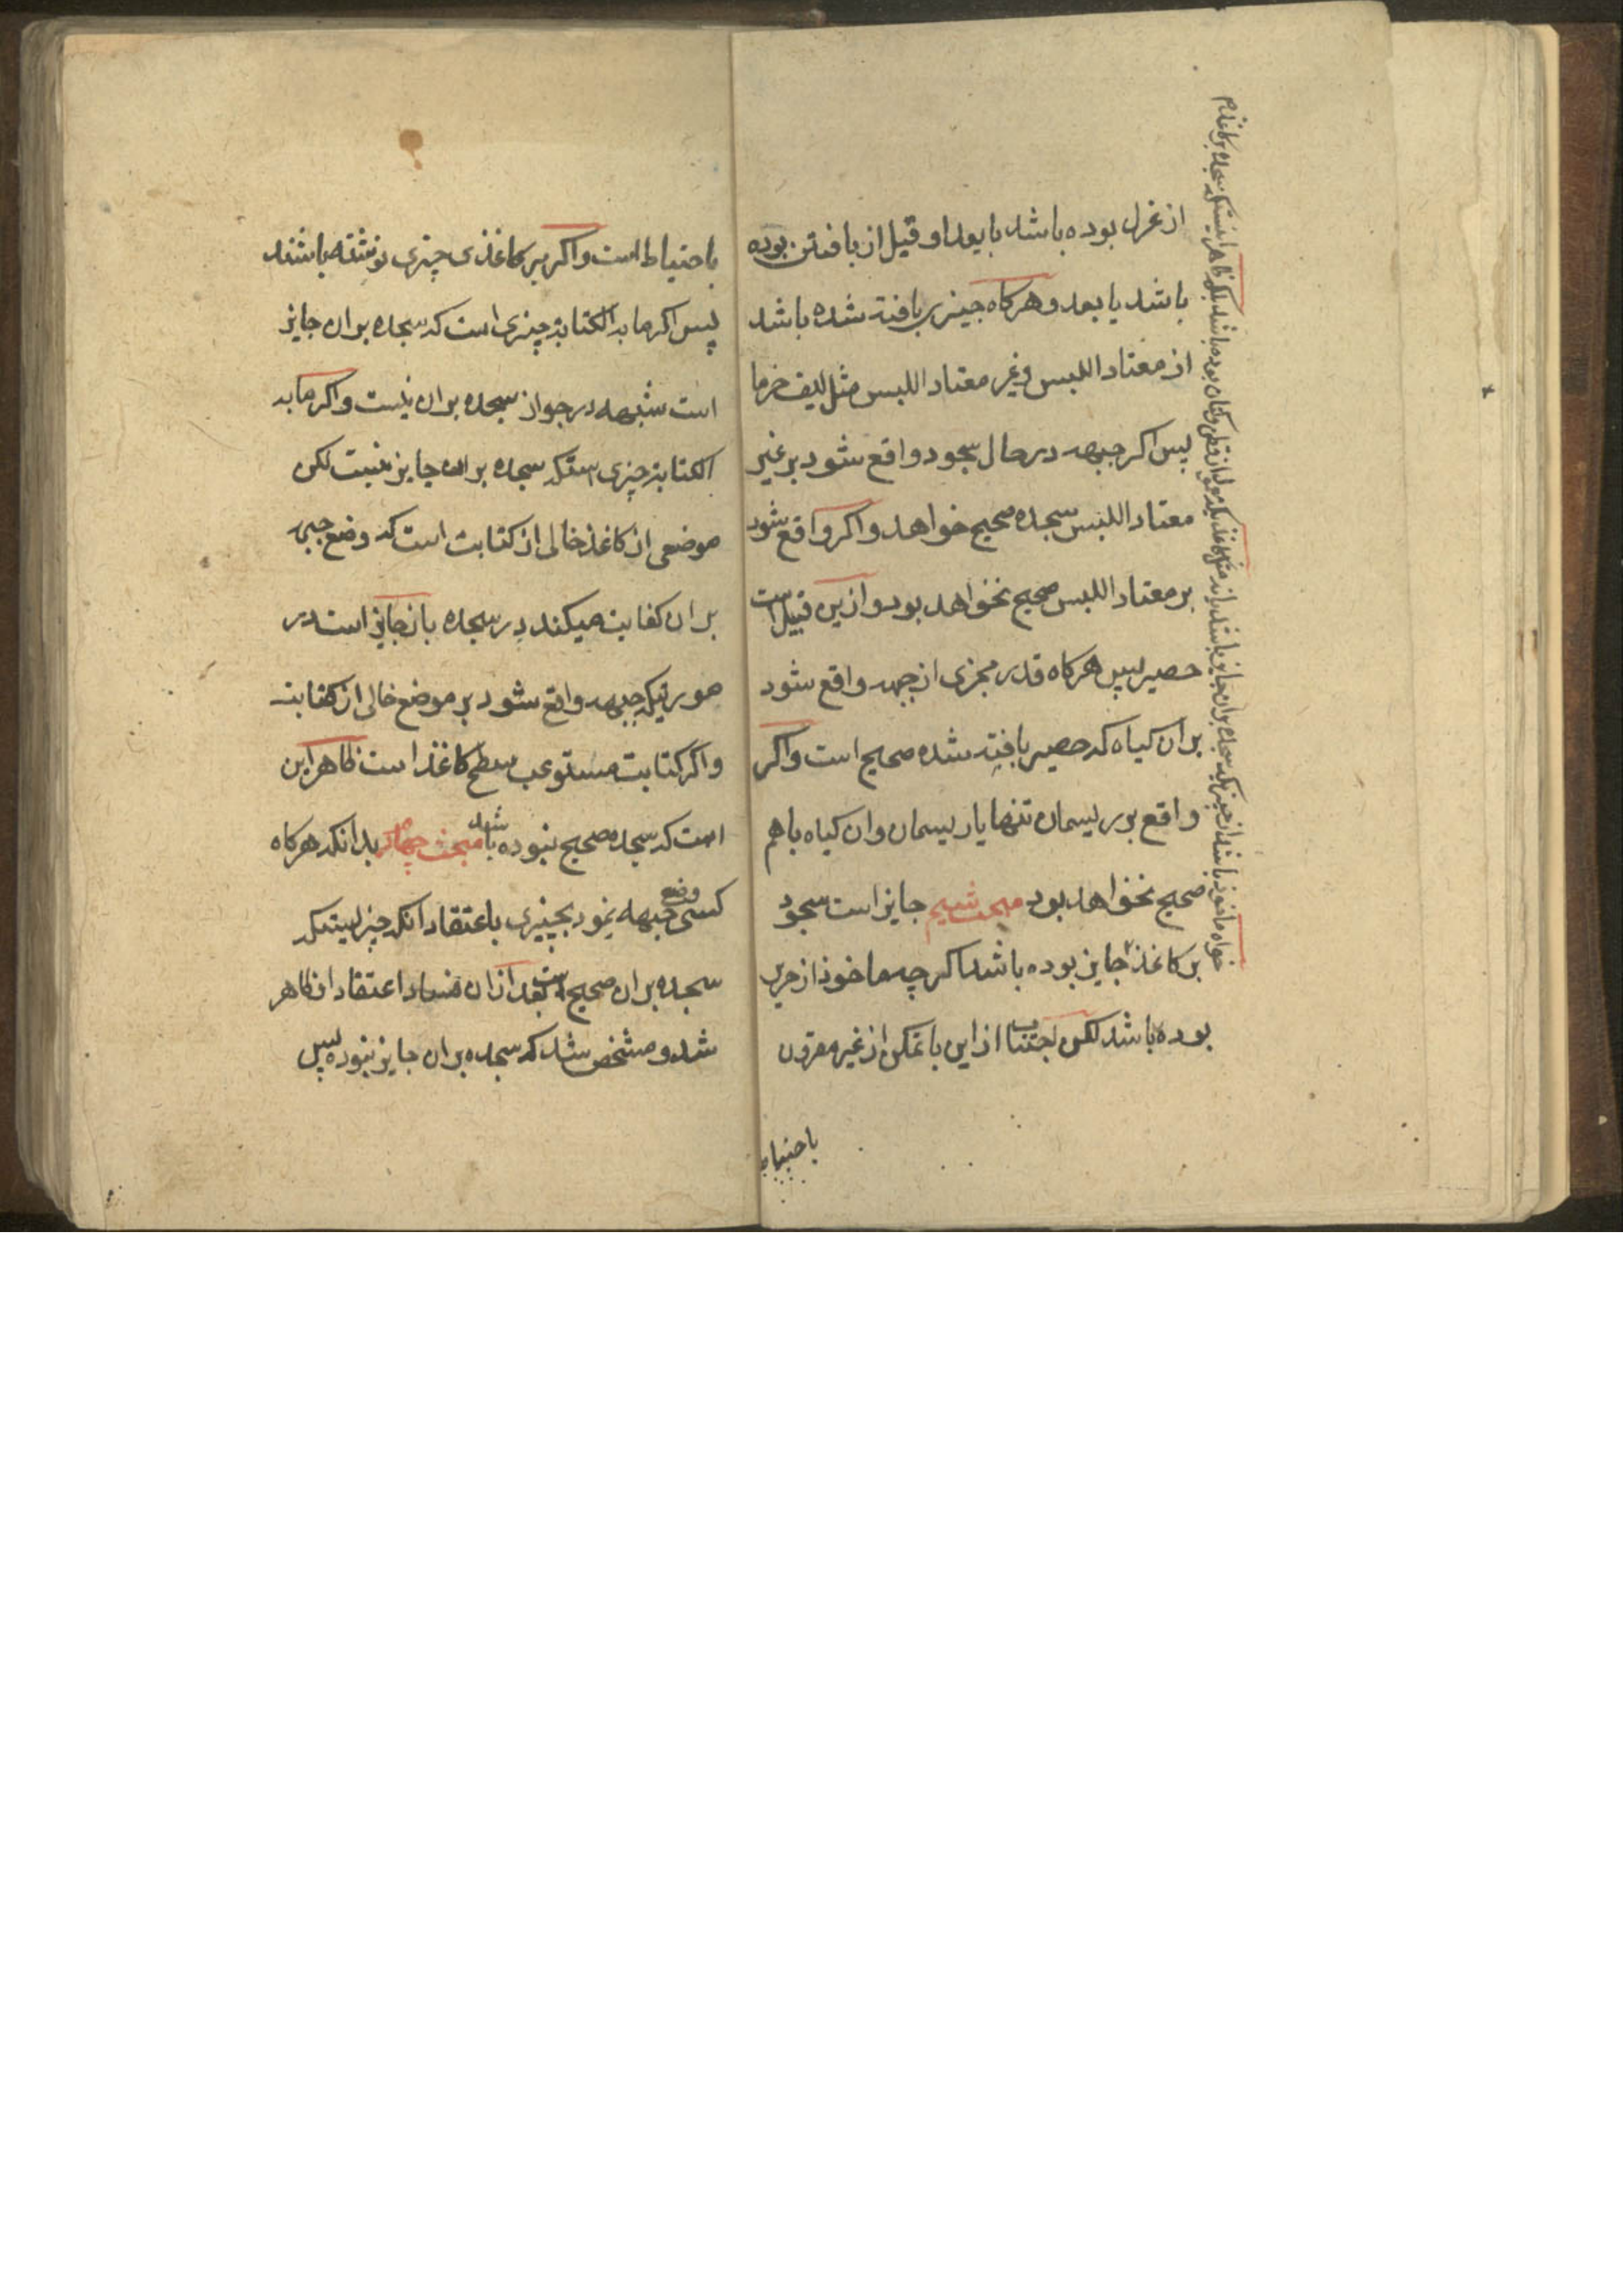 از غزل بوده باشد یا بعد او قبل از بافتن بوده
باشد یا بعد و هرکاه چیزی بافته شده باشد
از معتاد اللبس و غیر معتاد اللبس مثل لیف خرما
پس اکر جبهه در حال سجود واقع شود بر غیر
معتاد اللبس سجده صحیح خواهد و اکر واقع شود
بر معتاد اللبس صحیح نخواهد بود و ازین قبیل است
حصیر پس هرکاه قدر مجزی از جبهه واقع شود
بر ان کیاه که حصیر بافته شده صحیح است و اکر
واقع بر ریسمان تنها یا ریسمان و ان کیاه باهم
صحیح نخواهد بود مبحث سیم جایز است سجود
بر کاغذ جایز بوده باشد اکرچه ماخوذ از حریر
بوده باشد لکن اجتناب از این با تمکن از غیر مقرون
باحتیاط
خواه ماخوذ باشد از چیزیکه سجده بران جایز باشد یا نه مثل کاغذیکه معمول از قطن و کتان بوده باشد بلکه ظاهر اینستکه سجده بر کاغذ هم
باحتیاط است و اکر بر کاغذی چیزی نوشته باشند
پس اکر ما به الکتابة چیزی است که سجده بران جایز
است شبهه در جواز سجده بران نیست و اکر ما به
الکتابة چیزی استکه سجده بران جایز نیست لکن
موضعی از کاغذ خالی از کتابت است که وضع جبهه
بران کفایت میکند در سجده باز جایز است در
صورتیکه جبهه واقع شود بر موضع خالی از کتابت
و اکر کتابت مستوعب سطح کاغذ است ظاهر این
است که سجده صحیح نبوده باشد مبحث چهارم بدانکه هرکاه
کسی وضع جبهه نمود بچیزی باعتقاد انکه چیزیستکه
سجده بران صحیح است بعد ازان فساد اعتقاد ان ظاهر
شد و مشخص شد که سجده بران جایز نبوده پس